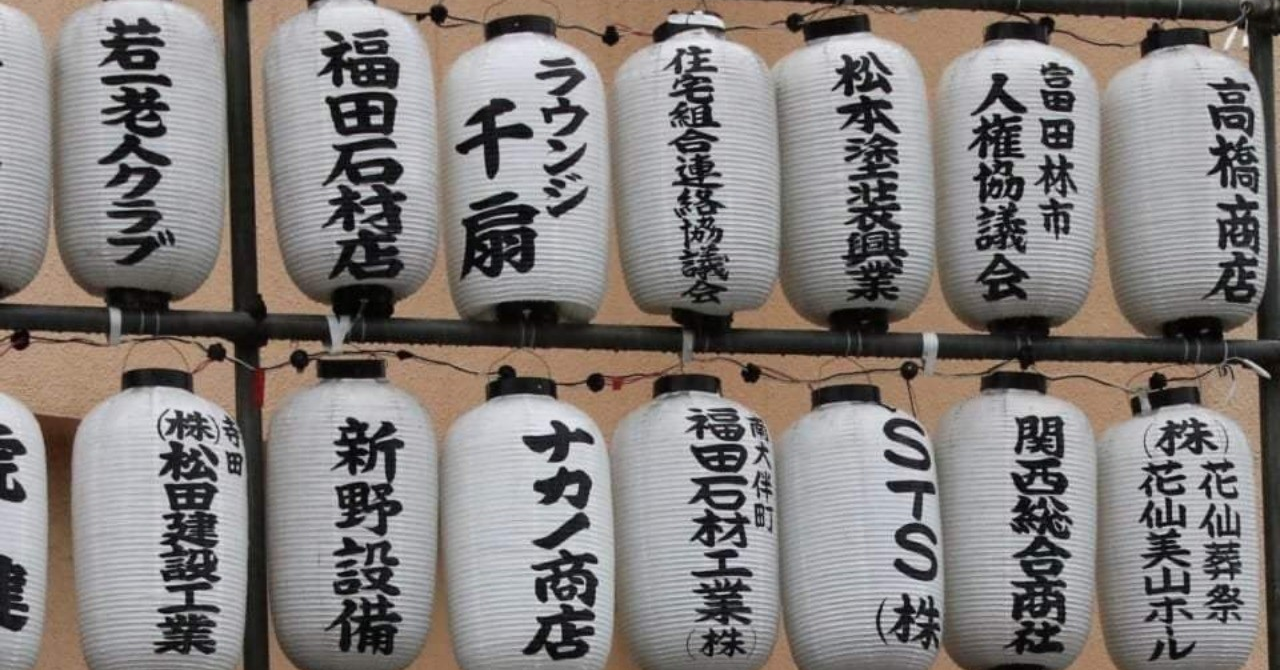 若一老人クラブ
福田石材店
ラウンジ
千扇
住宅組合連絡協議会
松本塗装興業
富田林市
人権協議会
高橋商店
寺田
(株)松田建設工業
新野設備
ナカノ商店
南大伴町
福田石材工業(株)
STS(株
関西総合商社
(株)
花仙葬祭
花仙美山ホール